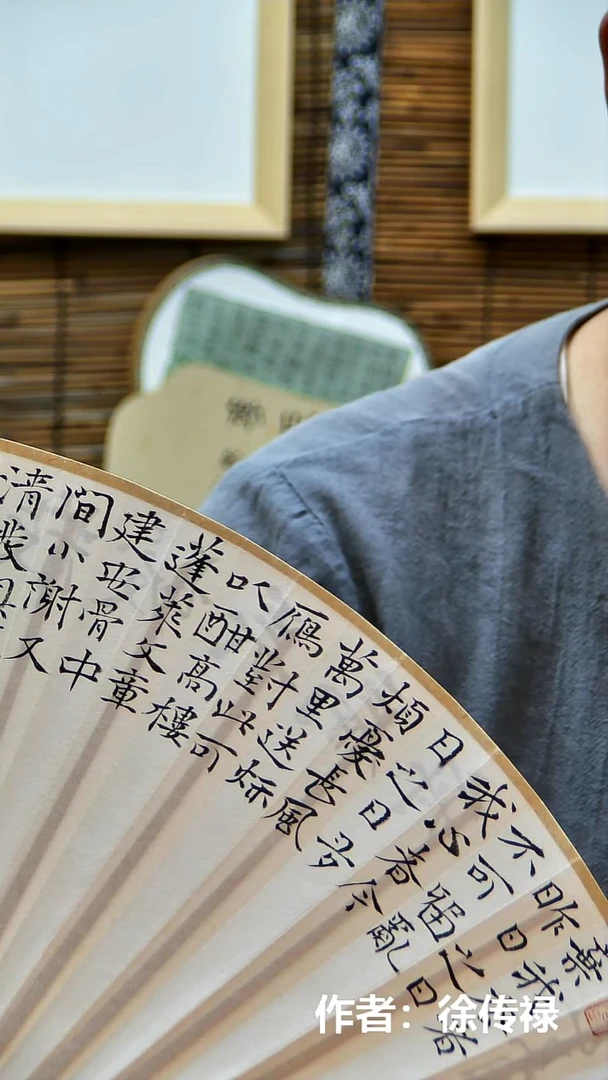 棄我去者
昨日之日
不可留亂
我心者今
日之日多
煩憂長風
萬里送秋
鴈對此可
以酣高樓
蓬萊文章
建安骨中
間小謝又
清發俱
作者：徐传禄